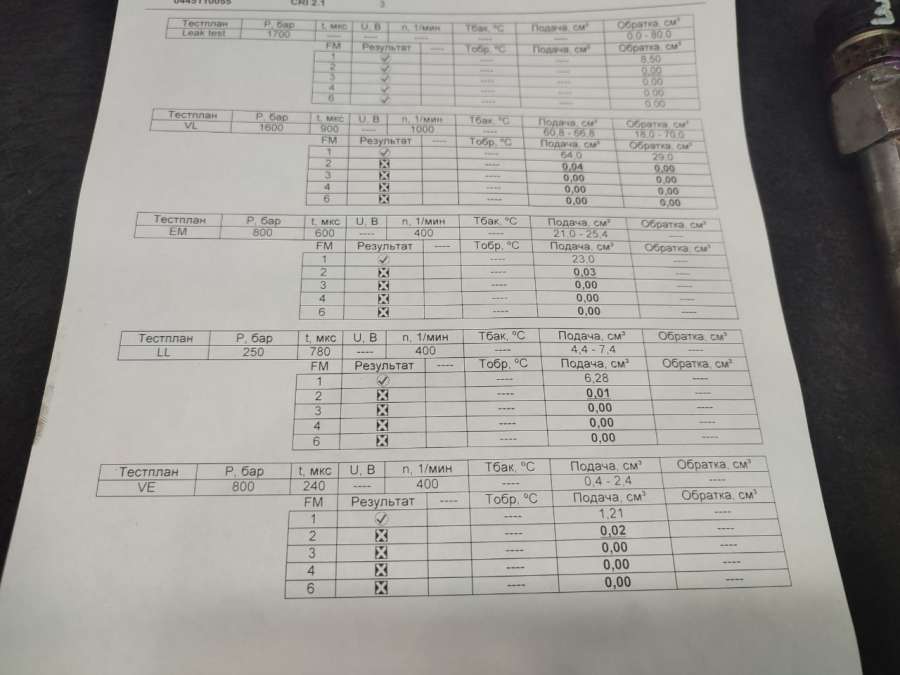 0445110055 CRI 2.1 3
Тестплан P, бар t, мкс U, В n, 1/мин Тбак, ºC Подача, см³ Обратка, см³
Leak test 1700 ---- ---- ---- ---- ---- 0,0 - 80,0
FM Результат ---- Тобр, ºC Подача, см³ Обратка, см³
1 ---- ---- 8,50
2 ---- ---- 0,00
3 ---- ---- 0,00
4 ---- ---- 0,00
6 ---- ---- 0,00
Тестплан P, бар t, мкс U, В n, 1/мин Тбак, ºC Подача, см³ Обратка, см³
VL 1600 900 ---- 1000 ---- 60,8 - 66,8 18,0 - 70,0
FM Результат ---- Тобр, ºC Подача, см³ Обратка, см³
1 ---- 64,0 29,0
2 ---- 0,04 0,00
3 ---- 0,00 0,00
4 ---- 0,00 0,00
6 ---- 0,00 0,00
Тестплан P, бар t, мкс U, В n, 1/мин Тбак, ºC Подача, см³ Обратка, см³
EM 800 600 ---- 400 ---- 21,0 - 25,4 ----
FM Результат ---- Тобр, ºC Подача, см³ Обратка, см³
1 ---- 23,0 ----
2 ---- 0,03 ----
3 ---- 0,00 ----
4 ---- 0,00 ----
6 ---- 0,00 ----
Тестплан P, бар t, мкс U, В n, 1/мин Тбак, ºC Подача, см³ Обратка, см³
LL 250 780 ---- 400 ---- 4,4 - 7,4 ----
FM Результат ---- Тобр, ºC Подача, см³ Обратка, см³
1 ---- 6,28 ----
2 ---- 0,01 ----
3 ---- 0,00 ----
4 ---- 0,00 ----
6 ---- 0,00 ----
Тестплан P, бар t, мкс U, В n, 1/мин Тбак, ºC Подача, см³ Обратка, см³
VE 800 240 ---- 400 ---- 0,4 - 2,4 ----
FM Результат ---- Тобр, ºC Подача, см³ Обратка, см³
1 ---- 1,21 ----
2 ---- 0,02 ----
3 ---- 0,00 ----
4 ---- 0,00 ----
6 ---- 0,00 ----
3